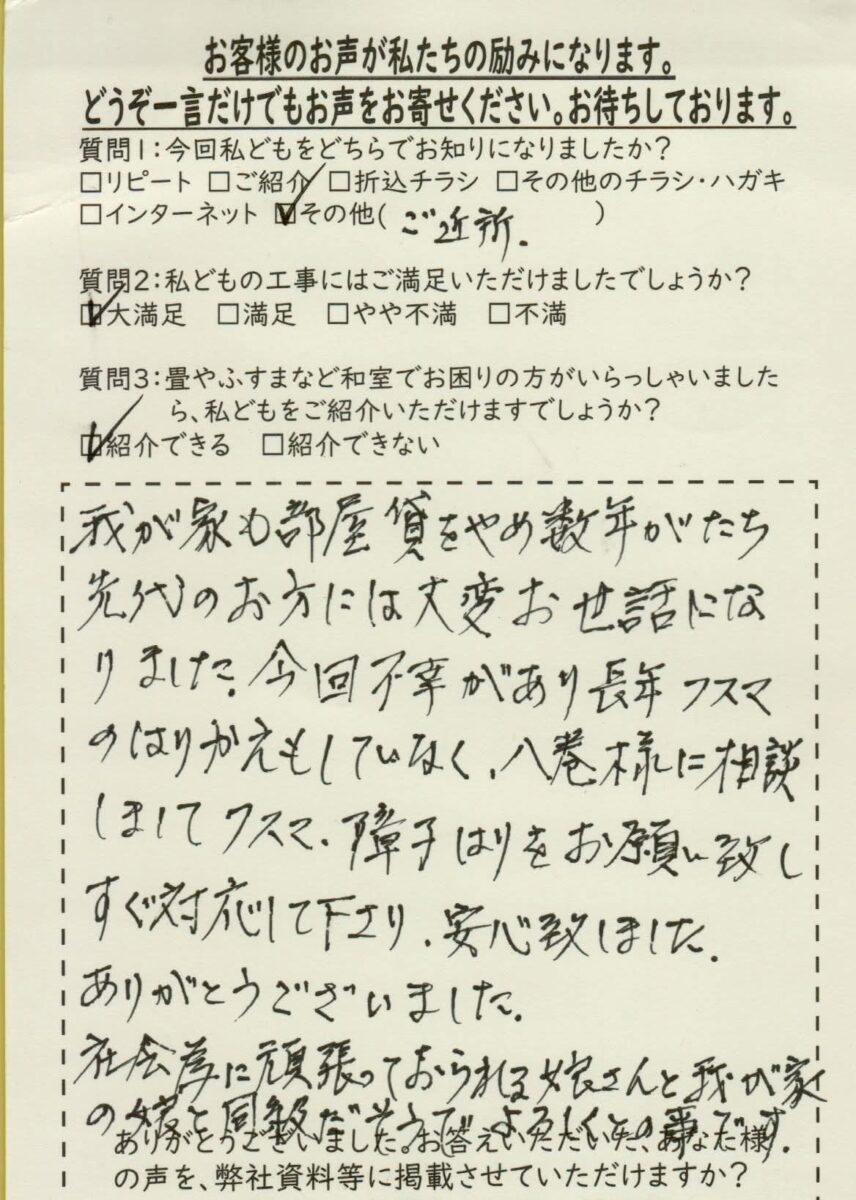 お客様のお声が私たちの励みになります。
どうぞ一言だけでもお声をお寄せください。お待ちしております。
質問1：今回私どもをどちらでお知りになりましたか？
□リピート □ご紹介 □折込チラシ □その他のチラシ・ハガキ
□インターネット ☑その他( ご近所. )
質問2：私どもの工事にはご満足いただけましたでしょうか？
☑大満足 □満足 □やや不満 □不満
質問3：畳やふすまなど和室でお困りの方がいらっしゃいました
ら、私どもをご紹介いただけますでしょうか？
☑紹介できる □紹介できない
我が家も部屋貸をやめ数年がたち
先代のお方には大変お世話にな
りました。今回不幸があり長年フスマ
のはりかえもしていなく、八巻様に相談
しましてフスマ、障子はりをお願い致し
すぐ対応して下さり、安心致しました.
ありがとうございました.
社会為に頑張っておられる娘さんと我が家
の娘と同級だそうでよろしくとの事です.
ありがとうございました。お答えいただいた、あなた様
の声を、弊社資料等に掲載させていただけますか？